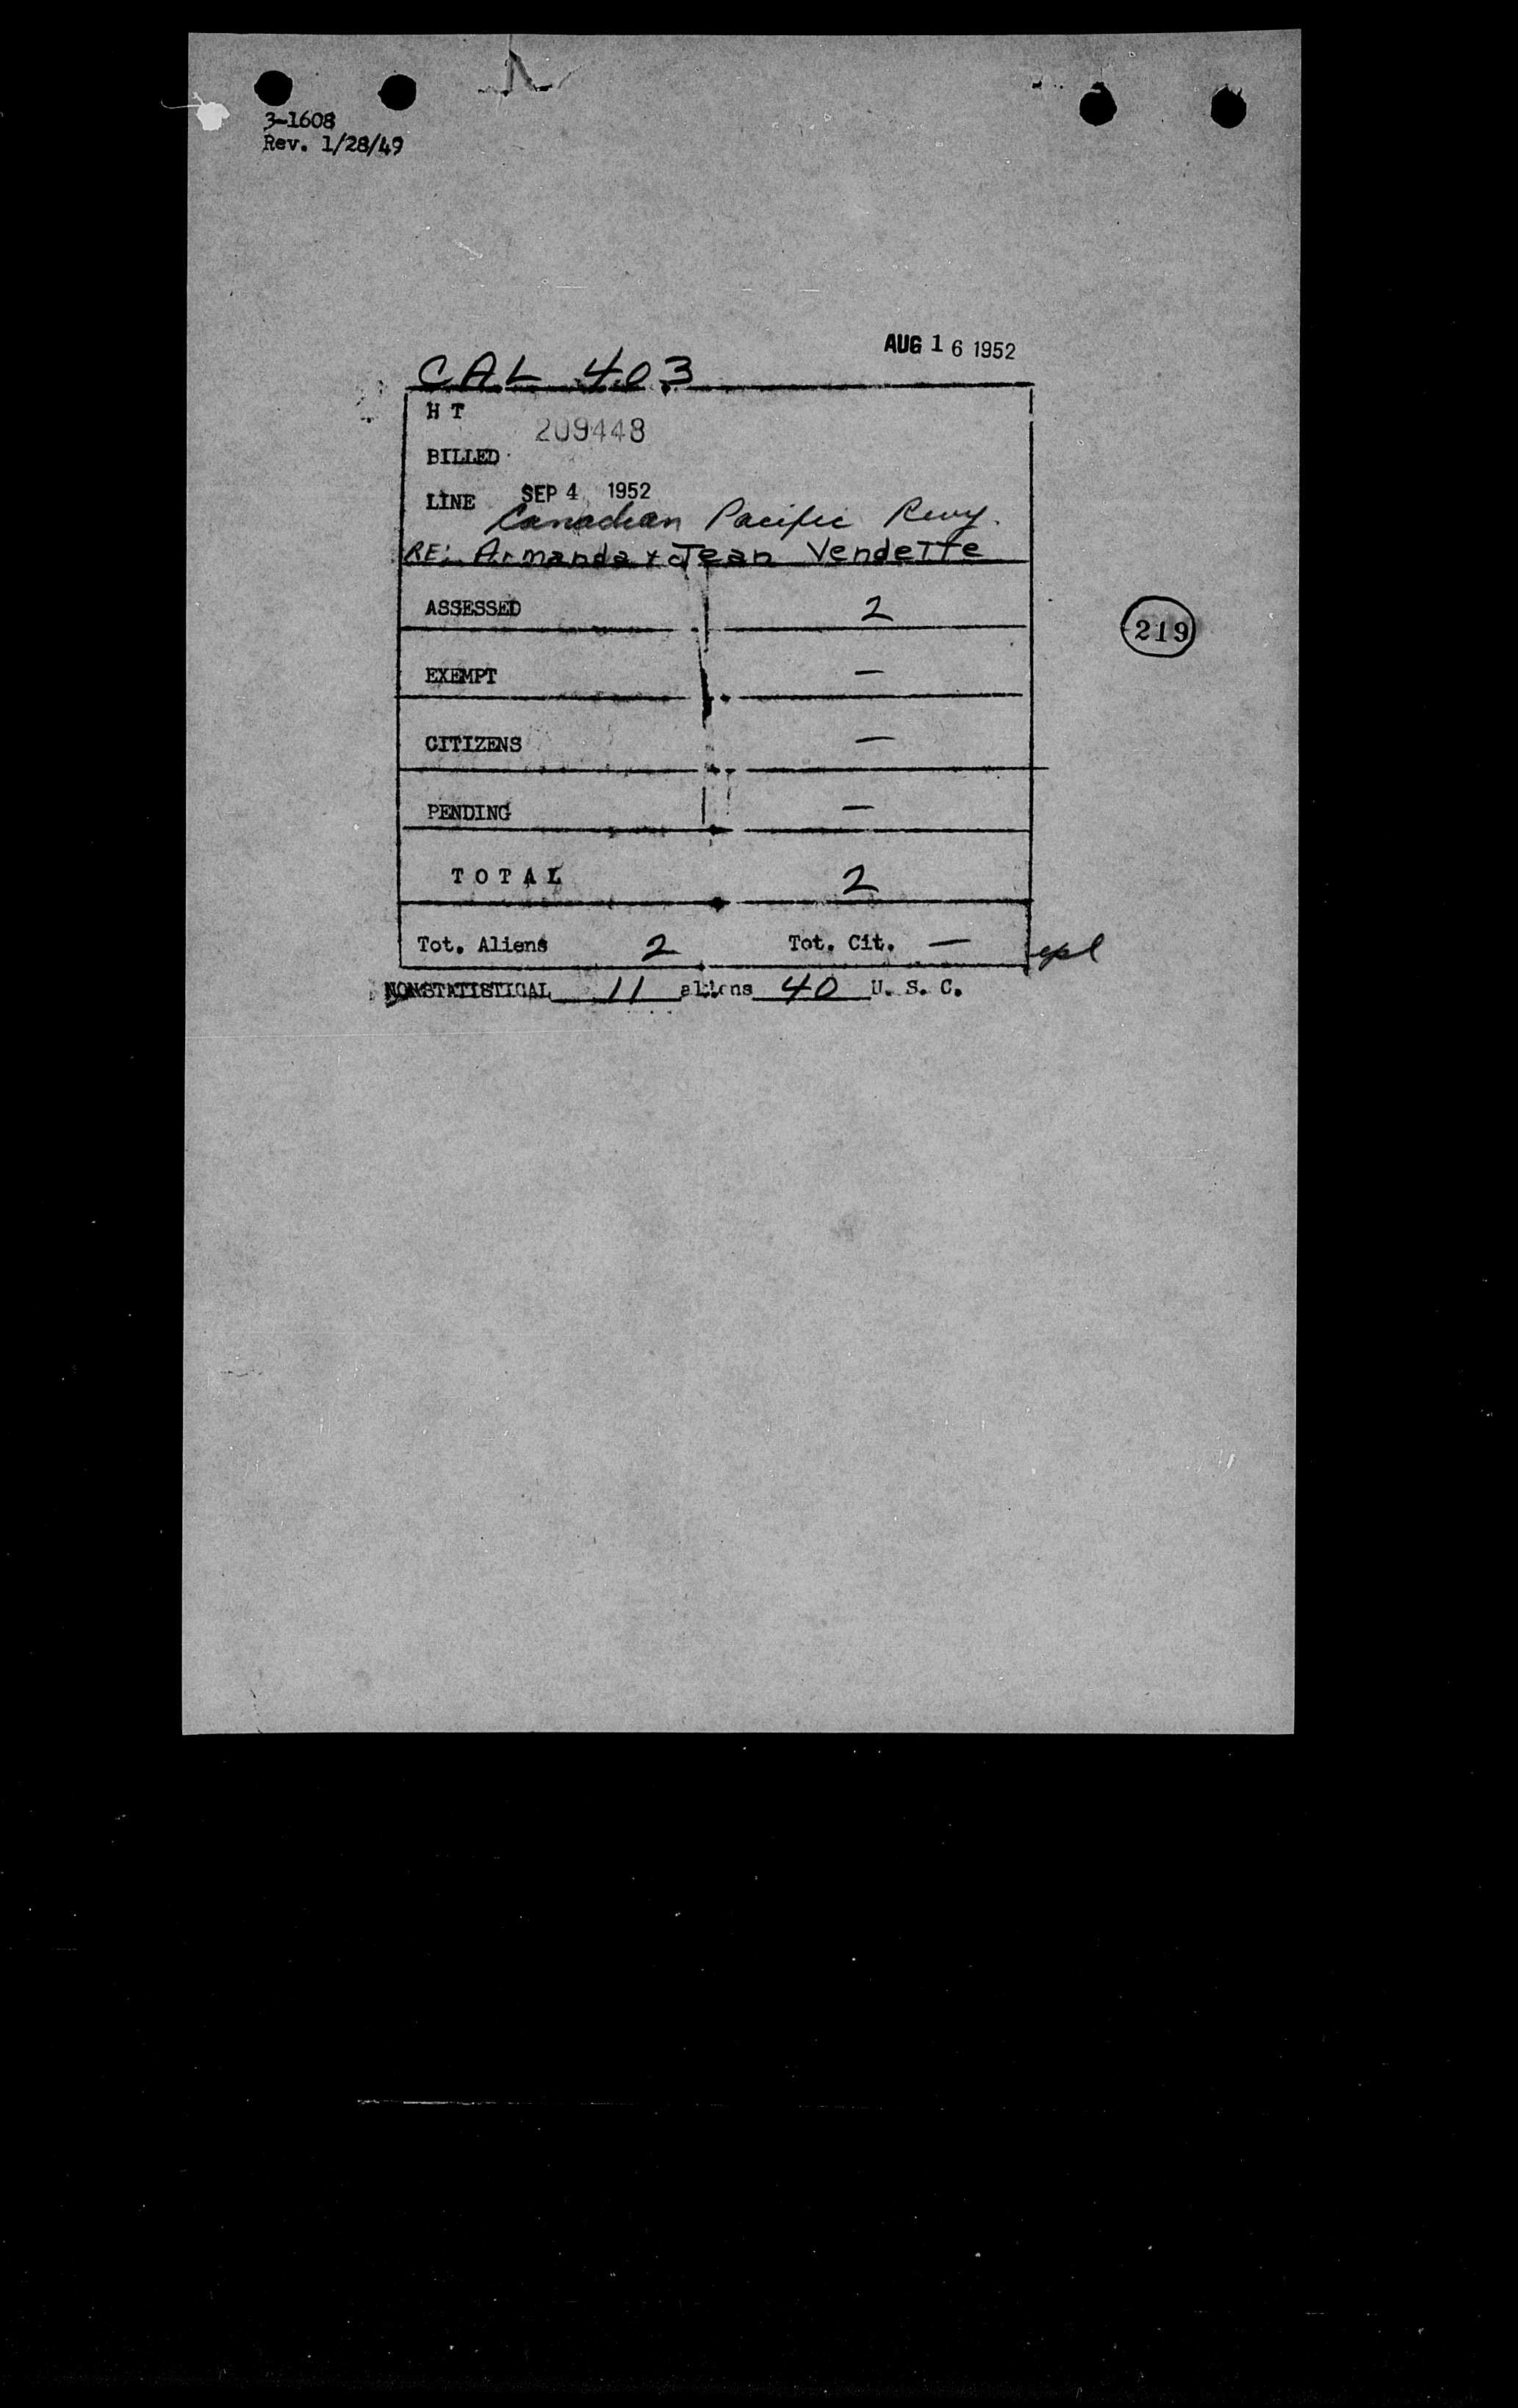 3-1608
Rev. 1/28/49
AUG 16 1952
CAL 403
H T
209448
BILLED
LINE SEP 4 1952
Canadian Pacific Rwy.
RE: Armanda + Jean Vendette
ASSESSED 2
219
EXEMPT —
CITIZENS —
PENDING —
TOTAL 2
Tot. Aliens 2 Tot. Cit. —
NONSTATISTICAL 11 aliens 40 U. S. C.